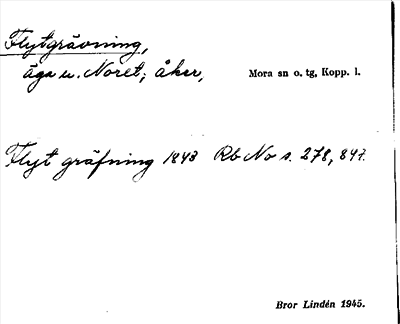 Flytgrävning,
äga u. Noret; åker, Mora sn o. tg, Kopp. l.
Flyt gräfning 1843 Rb No s. 278, 847.
Bror Lindén 1945.